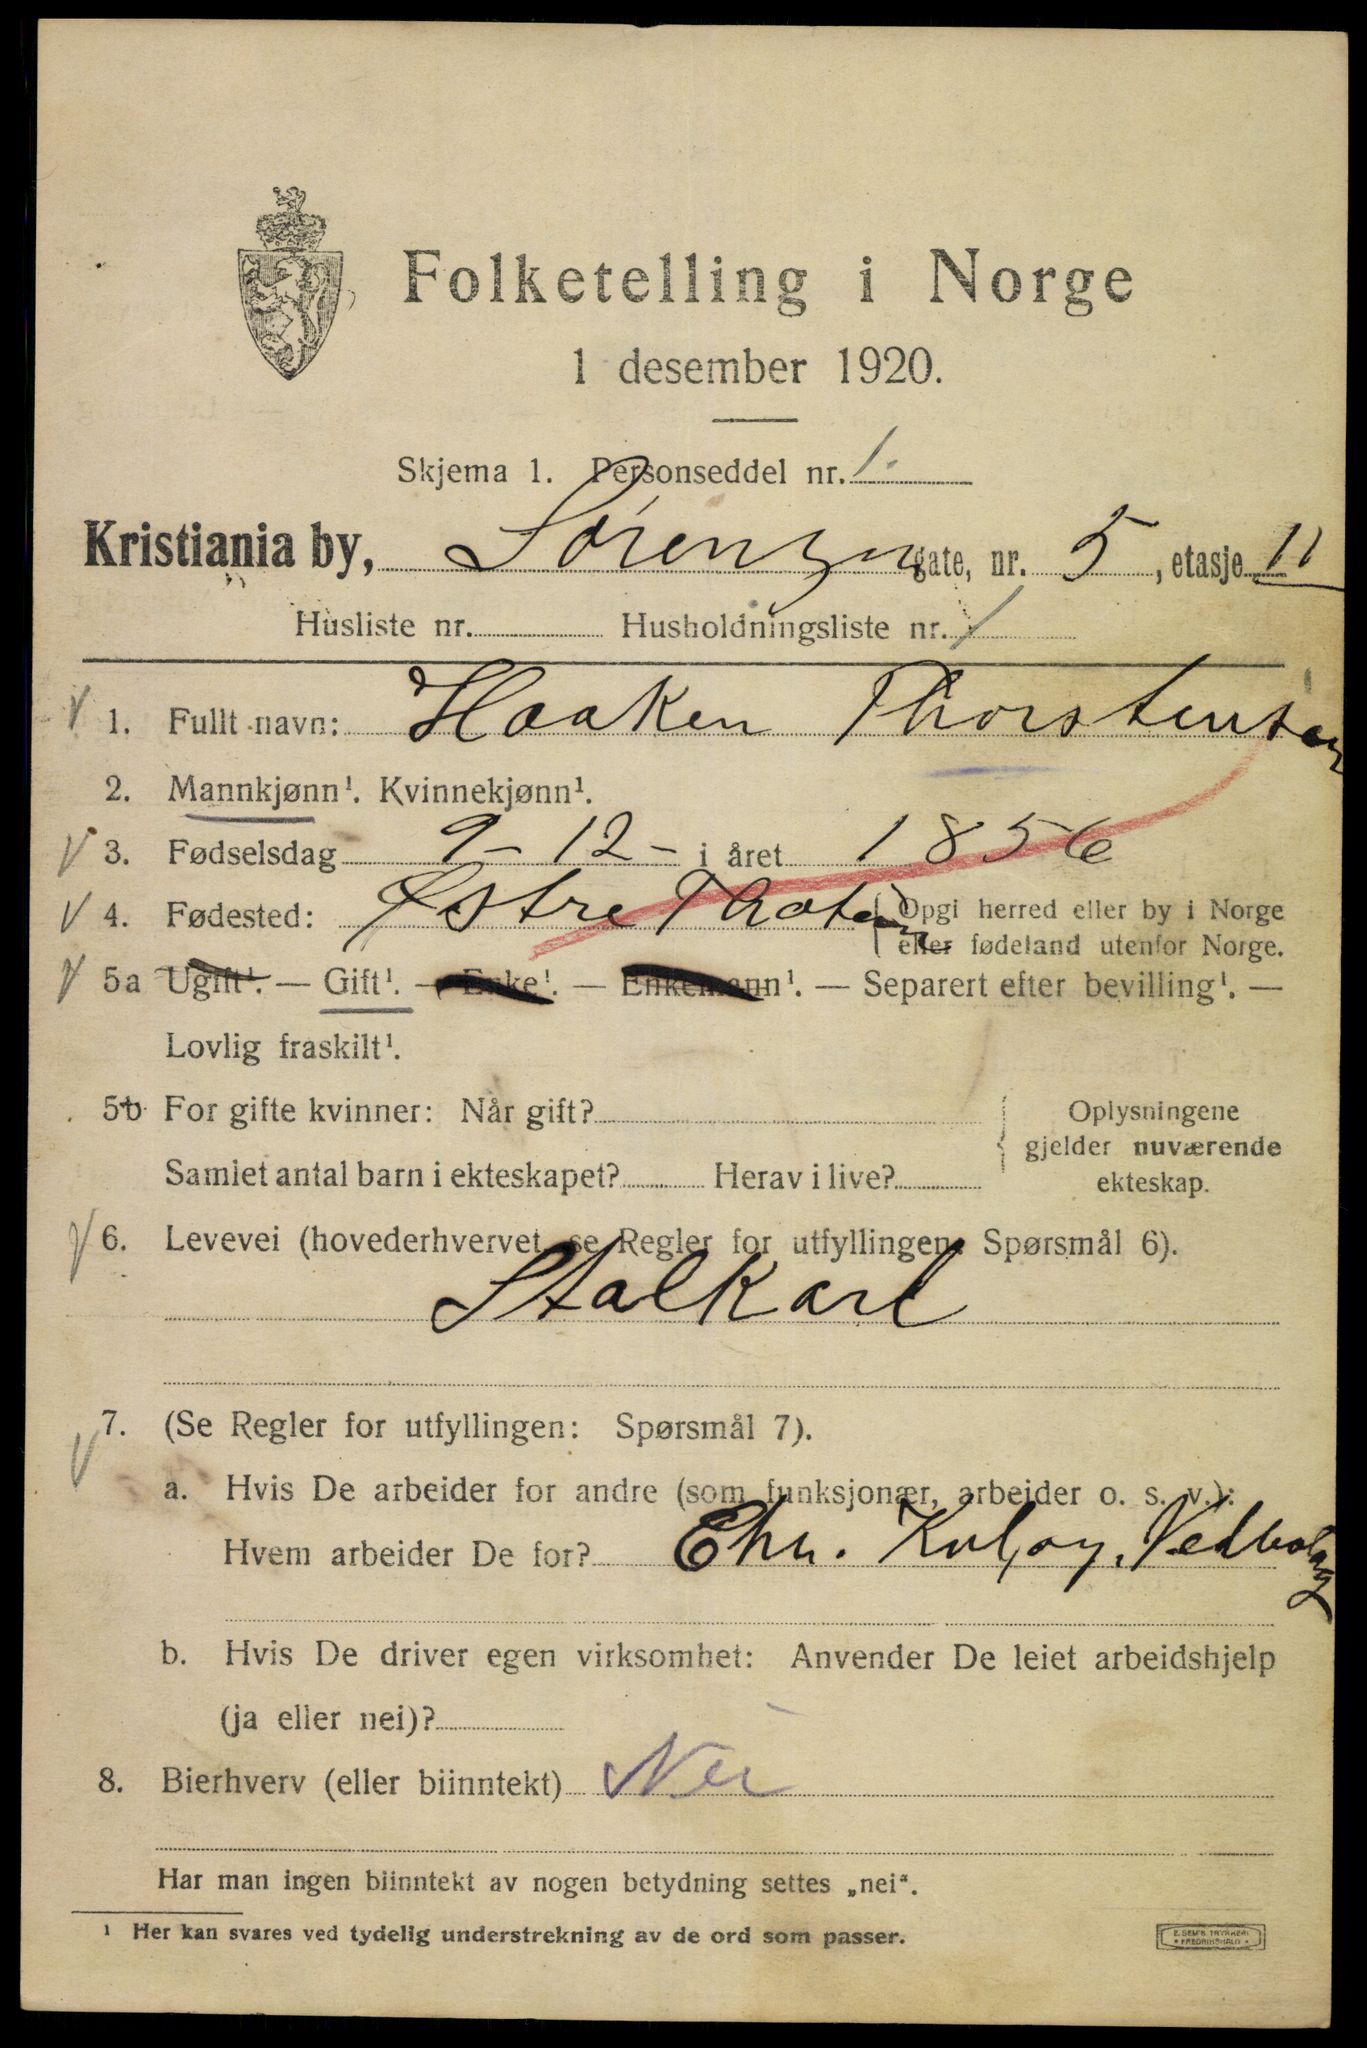 Folketelling i Norge
1 desember 1920.
Skjema 1. Personseddel nr. 1.
Kristiania by, Sörenzen gate, nr. 5, etasje 11
Husliste nr. Husholdningsliste nr. 1
1. Fullt navn: Haaken Thorstensen
2. Mannkjønn¹. Kvinnekjønn¹.
3. Fødselsdag 9-12- i året 1856
4. Fødested: Østre Thoten (Opgi herred eller by i Norge
eller fødeland utenfor Norge.
5a Ugift¹. — Gift¹. — Enke¹. — Enkemann¹. — Separert efter bevilling¹. —
Lovlig fraskilt¹.
5b For gifte kvinner: Når gift?
Samlet antal barn i ekteskapet? Herav i live?
Oplysningene
gjelder nuværende
ekteskap.
6. Levevei (hovederhvervet, se Regler for utfyllingen, Spørsmål 6).
Stalkarl
7. (Se Regler for utfyllingen: Spørsmål 7).
a. Hvis De arbeider for andre (som funksjonær, arbeider o. s. v.):
Hvem arbeider De for? Chr. Vedbolag
b. Hvis De driver egen virksomhet: Anvender De leiet arbeidshjelp
(ja eller nei)?
8. Bierhverv (eller biinntekt) Nei
Har man ingen biinntekt av nogen betydning settes „nei".
¹ Her kan svares ved tydelig understrekning av de ord som passer.
E. SEM'S TRYKKERI
FREDRIKSHALD